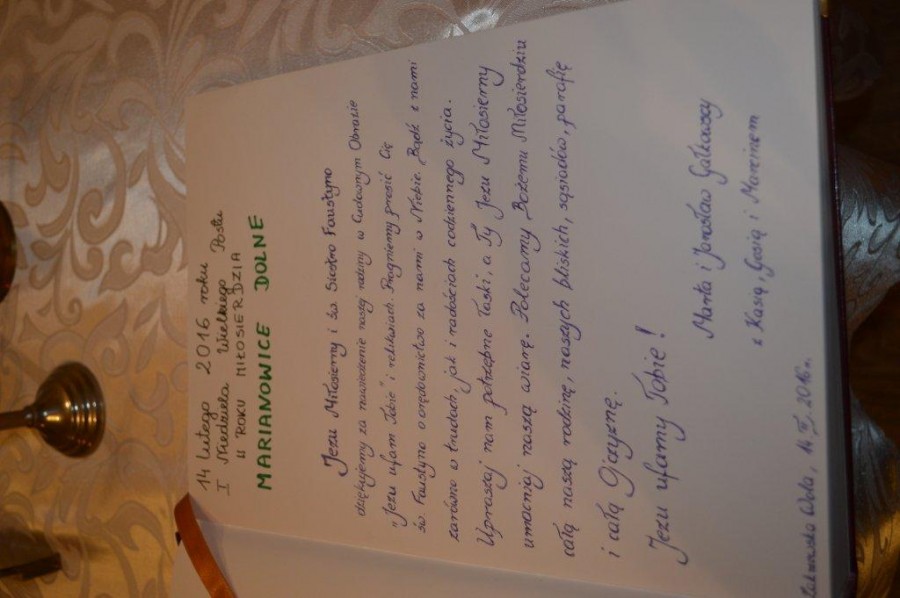 14 lutego 2016 roku
I Niedziela Wielkiego Postu
w ROKU MIŁOSIERDZIA
MARIANOWICE DOLNE
Jezu Miłosierny i św. Siostro Faustyno
dziękujemy za nawiedzenie naszej rodziny w Cudownym Obrazie
"Jezu ufam Tobie" i relikwiach. Pragniemy prosić Cię
św. Faustyno o orędownictwo za nami w Niebie. Bądź z nami
zarówno w trudach, jak i radościach codziennego życia.
Upraszaj nam potrzebne łaski, a Ty Jezu Miłosierny
umacniaj naszą wiarę. Polecamy Bożemu Miłosierdziu
całą naszą rodzinę, naszych bliskich, sąsiadów, parafię
i całą Ojczyznę.
Jezu ufamy Tobie!
Marta i Jarosław Gałkowscy
z Kasią, Gosią i Marcinem
Wola, 14 II 2016r.